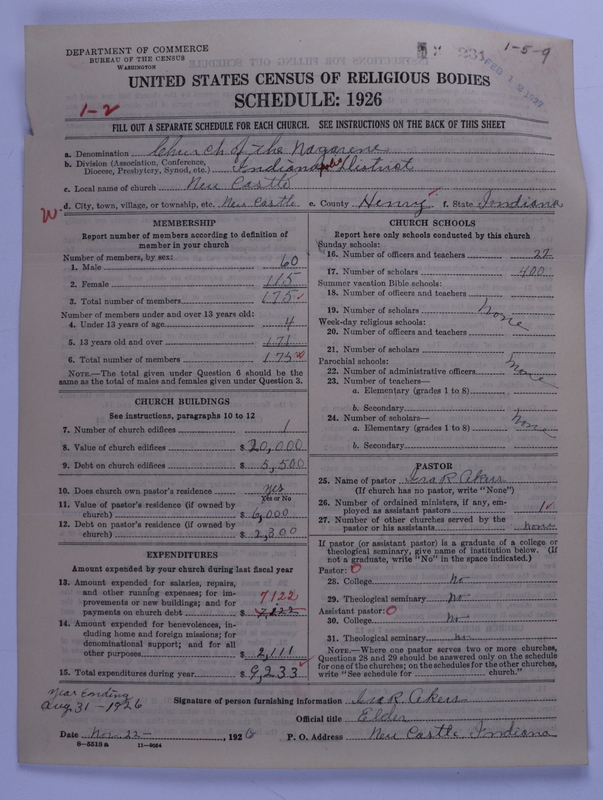 DEPARTMENT OF COMMERCE
BUREAU OF THE CENSUS
WASHINGTON
1-5-9
UNITED STATES CENSUS OF RELIGIOUS BODIES
SCHEDULE: 1926
1-2
FILL OUT A SEPARATE SCHEDULE FOR EACH CHURCH. SEE INSTRUCTIONS ON THE BACK OF THIS SHEET
a. Denomination Church of the Nazarene
b. Division (Association, Conference, Diocese, Presbytery, Synod, etc.) Indiana District
c. Local name of church New Castle
d. City, town, village, or township, etc. New Castle e. County Henry f. State Indiana
MEMBERSHIP
Report number of members according to definition of
member in your church
Number of members, by sex:
1. Male 60
2. Female 115
3. Total number of members 175
Number of members under and over 13 years old:
4. Under 13 years of age 4
5. 13 years old and over 171
6. Total number of members 175
NOTE.—The total given under Question 6 should be
same as the total of males and females given under Question 3.
CHURCH BUILDINGS
See instructions, paragraphs 10 to 12
7. Number of church edifices 1
8. Value of church edifices $20,000
9. Debt on church edifices $5,500
10. Does church own pastor's residence yes
Yes or No
11. Value of pastor's residence (if owned by
church) $6,000
12. Debt on pastor's residence (if owned by
church) $2,800
EXPENDITURES
Amount expended by your church during last fiscal year
13. Amount expended for salaries, repairs,
and other running expenses; for im-
provements or new buildings; and for
7122
payments on church debt $7,222
14. Amount expended for benevolences, in-
cluding home and foreign missions; for
denominational support; and for all
other purposes $2,111
15. Total expenditures during year $9,233
CHURCH SCHOOLS
Report here only schools conducted by this church
Sunday schools:
16. Number of officers and teachers 22
17. Number of scholars 400
Summer vacation Bible schools:
18. Number of officers and teachers
19. Number of scholars None
Week-day religious schools:
20. Number of officers and teachers
21. Number of scholars
Parochial schools:
22. Number of administrative officers None
23. Number of teachers—
a. Elementary (grades 1 to 8)
b. Secondary
24. Number of scholars—
a. Elementary (grades 1 to 8) None
b. Secondary
PASTOR
25. Name of pastor Ira R. Akers
(If church has no pastor, write "None")
26. Number of ordained ministers, if any, em-
ployed as assistant pastors 1
27. Number of other churches served by the
pastor or his assistants None
If pastor (or assistant pastor) is a graduate of a college or
theological seminary, give name of institution below. (If
not a graduate, write "No" in the space indicated.)
Pastor: O
28. College No
29. Theological seminary No
Assistant pastor: O
30. College No
31. Theological seminary No
NOTE.—Where one pastor serves two or more churches,
Questions 28 and 29 should be answered only on the schedule
for one of the churches; on the schedules for the other churches,
write "See schedule for church."
Year Ending
Aug 31 - 1926
Signature of person furnishing information Ira R. Akers
Official title Elder
Date Nov. 22 , 1926 P. O. Address New Castle Indiana
8-5518 a 11-9064